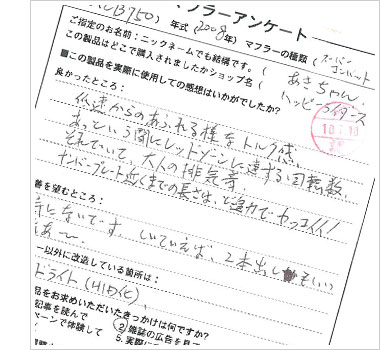 CB750) 年式(2008年) マフラーの種類(スーパーコンバット
マフラーアンケート
ご指定のお名前:ニックネームでも結構です。( あきちゃん
この製品はどこで購入されましたかショップ名( ハッピーライダース
■この製品を実際に使用しての感想はいかがでしたか?
良かったところ:
低速からのあふれる様なトルク感、
あっという間にレッドゾーンに達する回転数。
それでいて、大人の排気音。
ナンバープレート近くまでの長さは、ど迫力でカッコイイ!
善を望むところ:
特にないです。しいていえば、2本出しもいい
なあ〜
ー以外に改造している箇所は:
ドライト(HID化)
品をお求めいただいたきっかけは何ですか?
記事を読んで ②雑誌の広告を見て
マーンで体験して 5.実際に
10.7.10